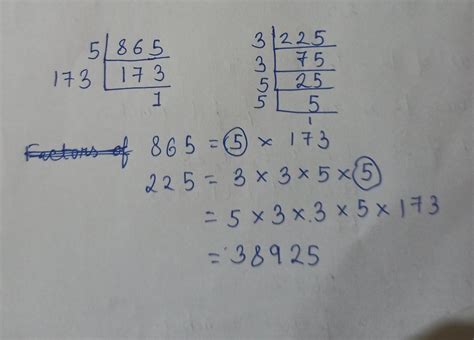 5 | 865
173 | 173
1
3 | 225
3 | 75
5 | 25
5 | 5
1
Factors of 865 = 5 × 173
225 = 3 × 3 × 5 × 5
= 5 × 3 × 3 × 5 × 173
= 38925